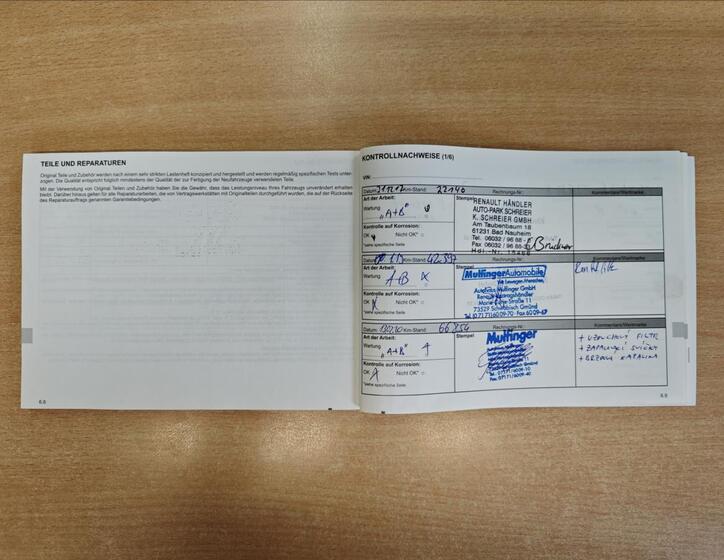 TEILE UND REPARATUREN
Original Teile und Zubehör werden nach einem sehr strikten Lastenheft konzipiert und hergestellt und werden regelmäßig spezifischen Tests unter-
zogen. Die Qualität entspricht folglich mindestens der Qualität der zur Fertigung der Neufahrzeuge verwendeten Teile.
Mit der Verwendung von Original Teilen und Zubehör haben Sie die Gewähr, dass das Leistungsniveau Ihres Fahrzeugs unverändert erhalten
bleibt. Darüber hinaus gelten für alle Reparaturarbeiten, die von Vertragswerkstätten mit Originalteilen durchgeführt wurden, die auf der Rückseite
des Reparaturauftrags genannten Garantiebedingungen.
6.8
KONTROLLNACHWEISE (1/6)
VIN:
Datum: Km-Stand: 22140 Rechnungs-Nr.: Kommentare/Wertmarke
Art der Arbeit:
Wartung
"A+B"
Kontrolle auf Korrosion:
OK Nicht OK*
*siehe spezifische Seite
Stempel
RENAULT HÄNDLER
AUTO-PARK SCHREIER
K. SCHREIER GMBH
Am Taubenbaum 18
61231 Bad Nauheim
Tel. 06032 / 96 88-
Fax 06032 / 96 88-
Datum: Km-Stand: 42397 Rechnungs-Nr.: Kommentare/Wertmarke
Art der Arbeit:
Wartung
A+B
Kontrolle auf Korrosion:
OK Nicht OK*
*siehe spezifische Seite
Stempel
MulfingerAutomobile
Wir bewegen Menschen.
Autohaus Mulfinger GmbH
73529 Schwäbisch Gmünd
Datum: Km-Stand: 66854 Rechnungs-Nr.: Kommentare/Wertmarke
Art der Arbeit:
Wartung
"A+B"
Kontrolle auf Korrosion:
OK Nicht OK*
*siehe spezifische Seite
Stempel
Mulfinger
+ VZDUCHOVÝ FILTR
+ ZAPALOVACÍ SVÍČKY
+ BRZDOVÁ KAPALINA
6.9